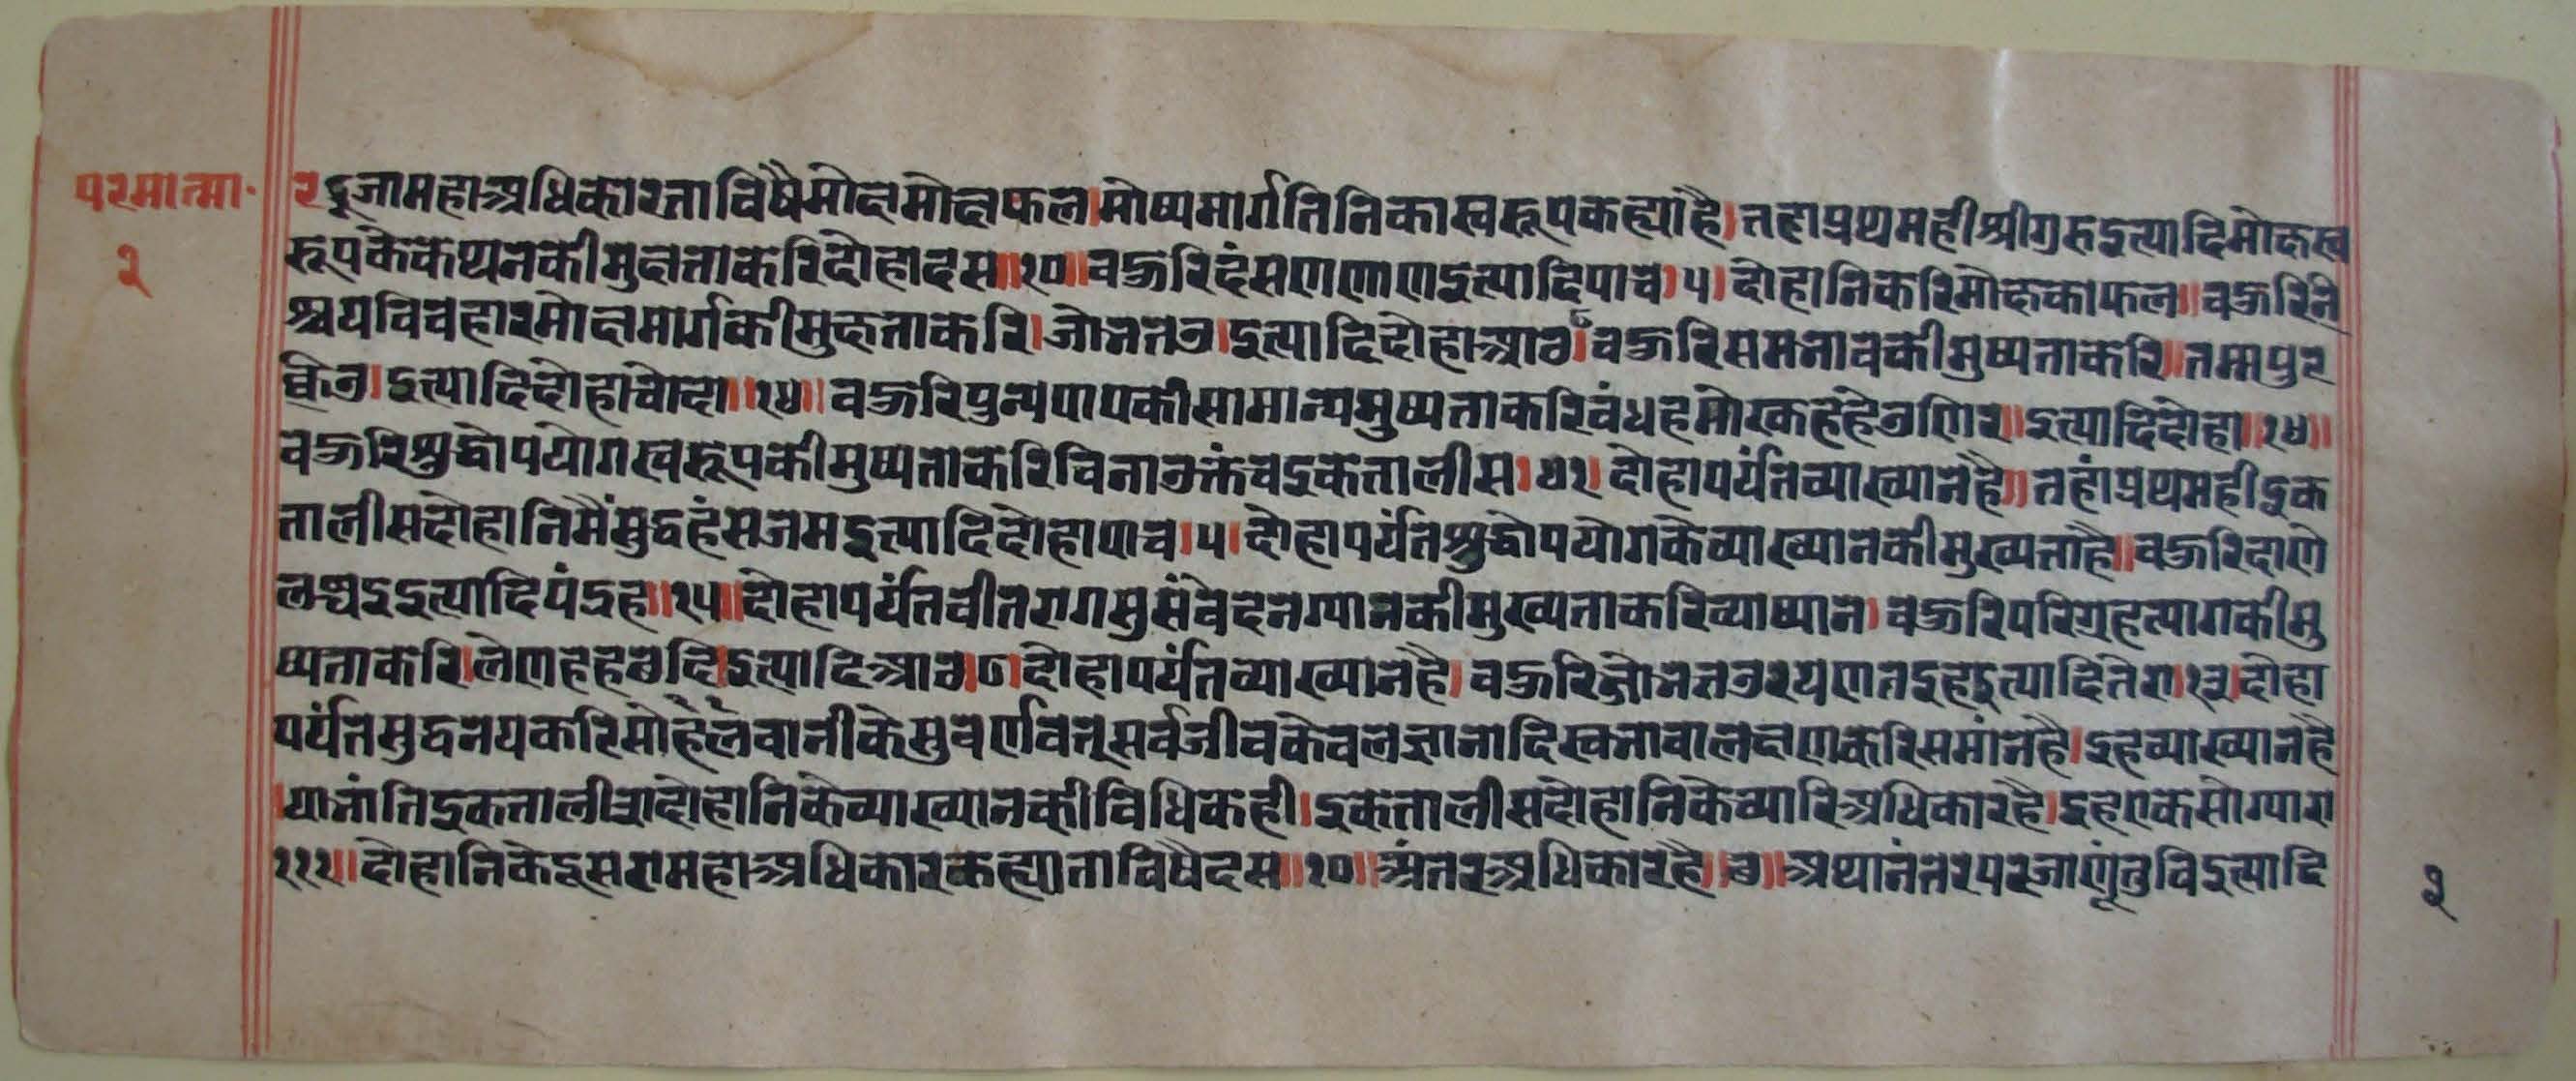 परमात्मा॰
२
२ दूजामहाअधिकारताविषैमोक्षमोक्षफल।मोष्यमार्गतिनिकास्वरूपकह्याहै।तहाप्रथमहीश्रीगुरुइत्यादिमोक्षस्व
रूपकेकथनकीमुक्षताकरिदोहादस॥१०॥वऊरिदंसणणाणइत्यादिपाच।५।दोहानिकरिमोक्षकाफल॥वऊरिनि
श्चयविवहारमोक्षमार्गकीमुक्षताकरि।जोभत्तउ।इत्यादिदोहाआठ।वऊरिसमभावकीमुष्यताकरि॥तम्मपुर
क्किउ।इत्यादिदोहाचोदा॥१४॥वऊरिपुन्यपापकीसामान्यमुष्यताकरिवंधहमोरकहहेउणिर॥इत्यादिदोहा॥१४॥
वऊरिश्रुद्धोपयोगस्वरूपकीमुष्यताकरिविनाउक्तंचइकतालीस।४१।दोहापर्यंतव्याख्यानहै॥तहांप्रथमहीइक
तालीसदोहानिमैंसुद्धहंसजमइत्यादिदोहापाच।५।दोहापर्यंतश्रुद्धोपयोगकेव्याख्यानकीमुख्यताहै॥वऊरिदाणे
लम्भइइत्यादिपंद्रह॥१५॥दोहापर्यंतवीतरागसुसंवेदनग्यानकीमुख्यताकरिव्याष्यान।वऊरिपरिग्रहत्यागकीमु
ष्यताकरि।लेणहहठदि।इत्यादिआठ।८।दोहापर्यंतव्याख्यानहै।वऊरिजोभत्तउरयणतइहइत्यादितेरा।१३।दोहा
पर्यंतसुद्धनयकरिसोहैलैवानीकेसुवर्णवित्सर्वजीवकेवलज्ञानादिस्वभावालक्षणकरिसमांनहै।इहव्याख्यानहै
।याभांतिइकतालीशदोहानिकेव्याख्यानकीविधिकही।इकतालीसदोहानिकेच्यारिअधिकारहै।इहएकसोग्यारा
१११॥दोहानिकेदूसरामहाअधिकारकह्याताविषैदस॥१०॥अंतरअधिकारहै॥छ॥अथानंतरपरजाणूंतुविइत्यादि
२